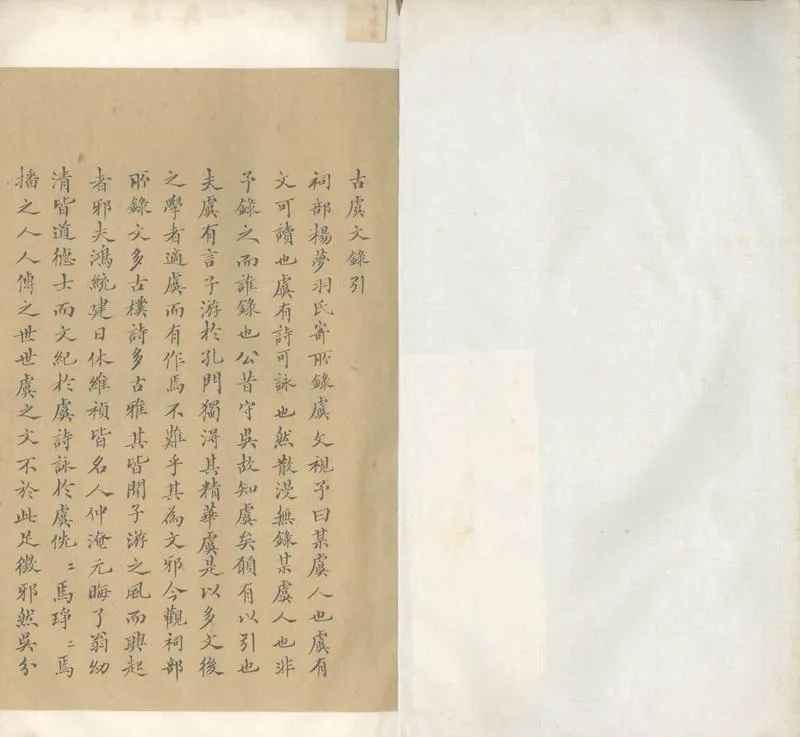 古虞文錄引
祠部楊夢羽氏寄所錄虞文視予曰某虞人也虞有
文可讀也虞有詩可詠也然散漫無錄某虞人也非
予錄之而誰錄也公昔守吳故知虞矣願有以引也
夫虞有言子游於孔門獨得其精華虞是以多文後
之學者適虞而有作焉不難乎其為文邪今觀祠部
所錄文多古樸詩多古雅其皆聞子游之風而興起
者邪夫鴻統建日休維禎皆名人仲淹元晦了翁幼
清皆道德士而文紀於虞詩詠於虞侁〻焉琤〻焉
播之人人傳之世世虞之文不於此足徵邪然吳分